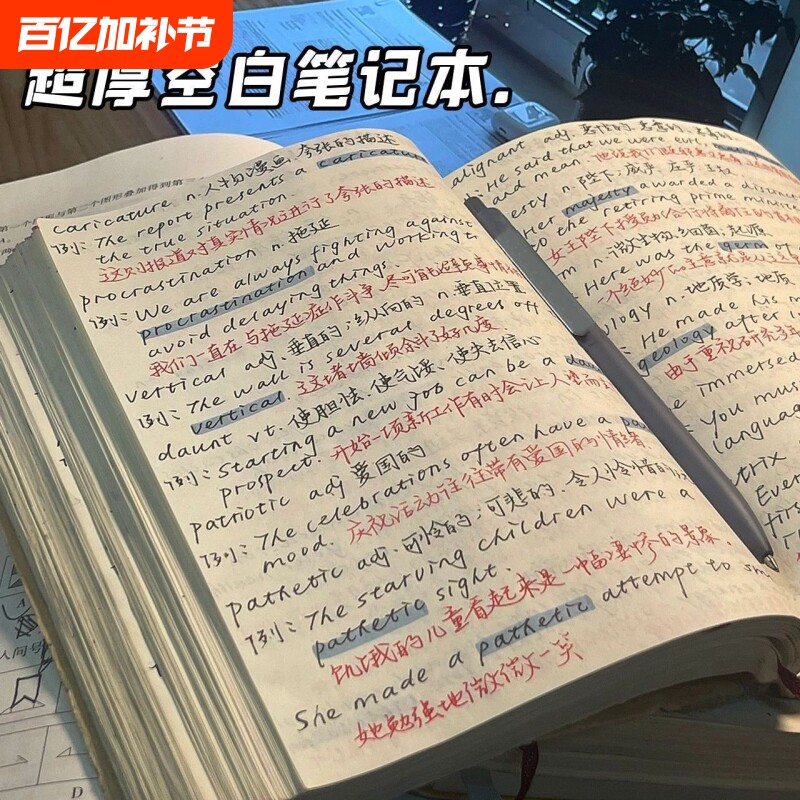 百亿加补节
超厚空白笔记本.
第一个图形与第二个图形叠加得到第三
caricature n.人物漫画,夸张的描述
例: The report presents a caricature
the true situation.
这则报道对真实情况进行了夸张的描述
procrastination n.拖延
例: We are always fighting against
procrastination and working to
avoid delaying things.
我们一直在与拖延症作斗争,尽可能
vertical adj.垂直的;纵向的 n.垂直位置
例: The wall is several degrees off
vertical. 这堵墙倾斜了好几度
daunt vt.使胆怯,使气馁,使失去信心
例: Starting a new job can be a
prospect. 开始一项新工作有时会让人
patriotic adj 爱国的
例: The celebrations often have a
mood. 庆祝活动往往带有爱国的情绪
pathetic adj.可怜的;可悲的,令人怜惜的
例: The starving children were a
pathetic sight.
饥饿的儿童看起来是一幅凄惨的景象.
She made a pathetic attempt to
她勉强地微微一笑
D
alignant adj.
: He said that we were
and mean.
esty n.陛下,威严,庄严
: Her majesty awarded a
to the retiring prime
m n.微生物,细菌;起源
: Here was the germ of
ology n.地质学;地质
: He made his
geology after
由于重视
immersed
You must
language
trix
Ever
first